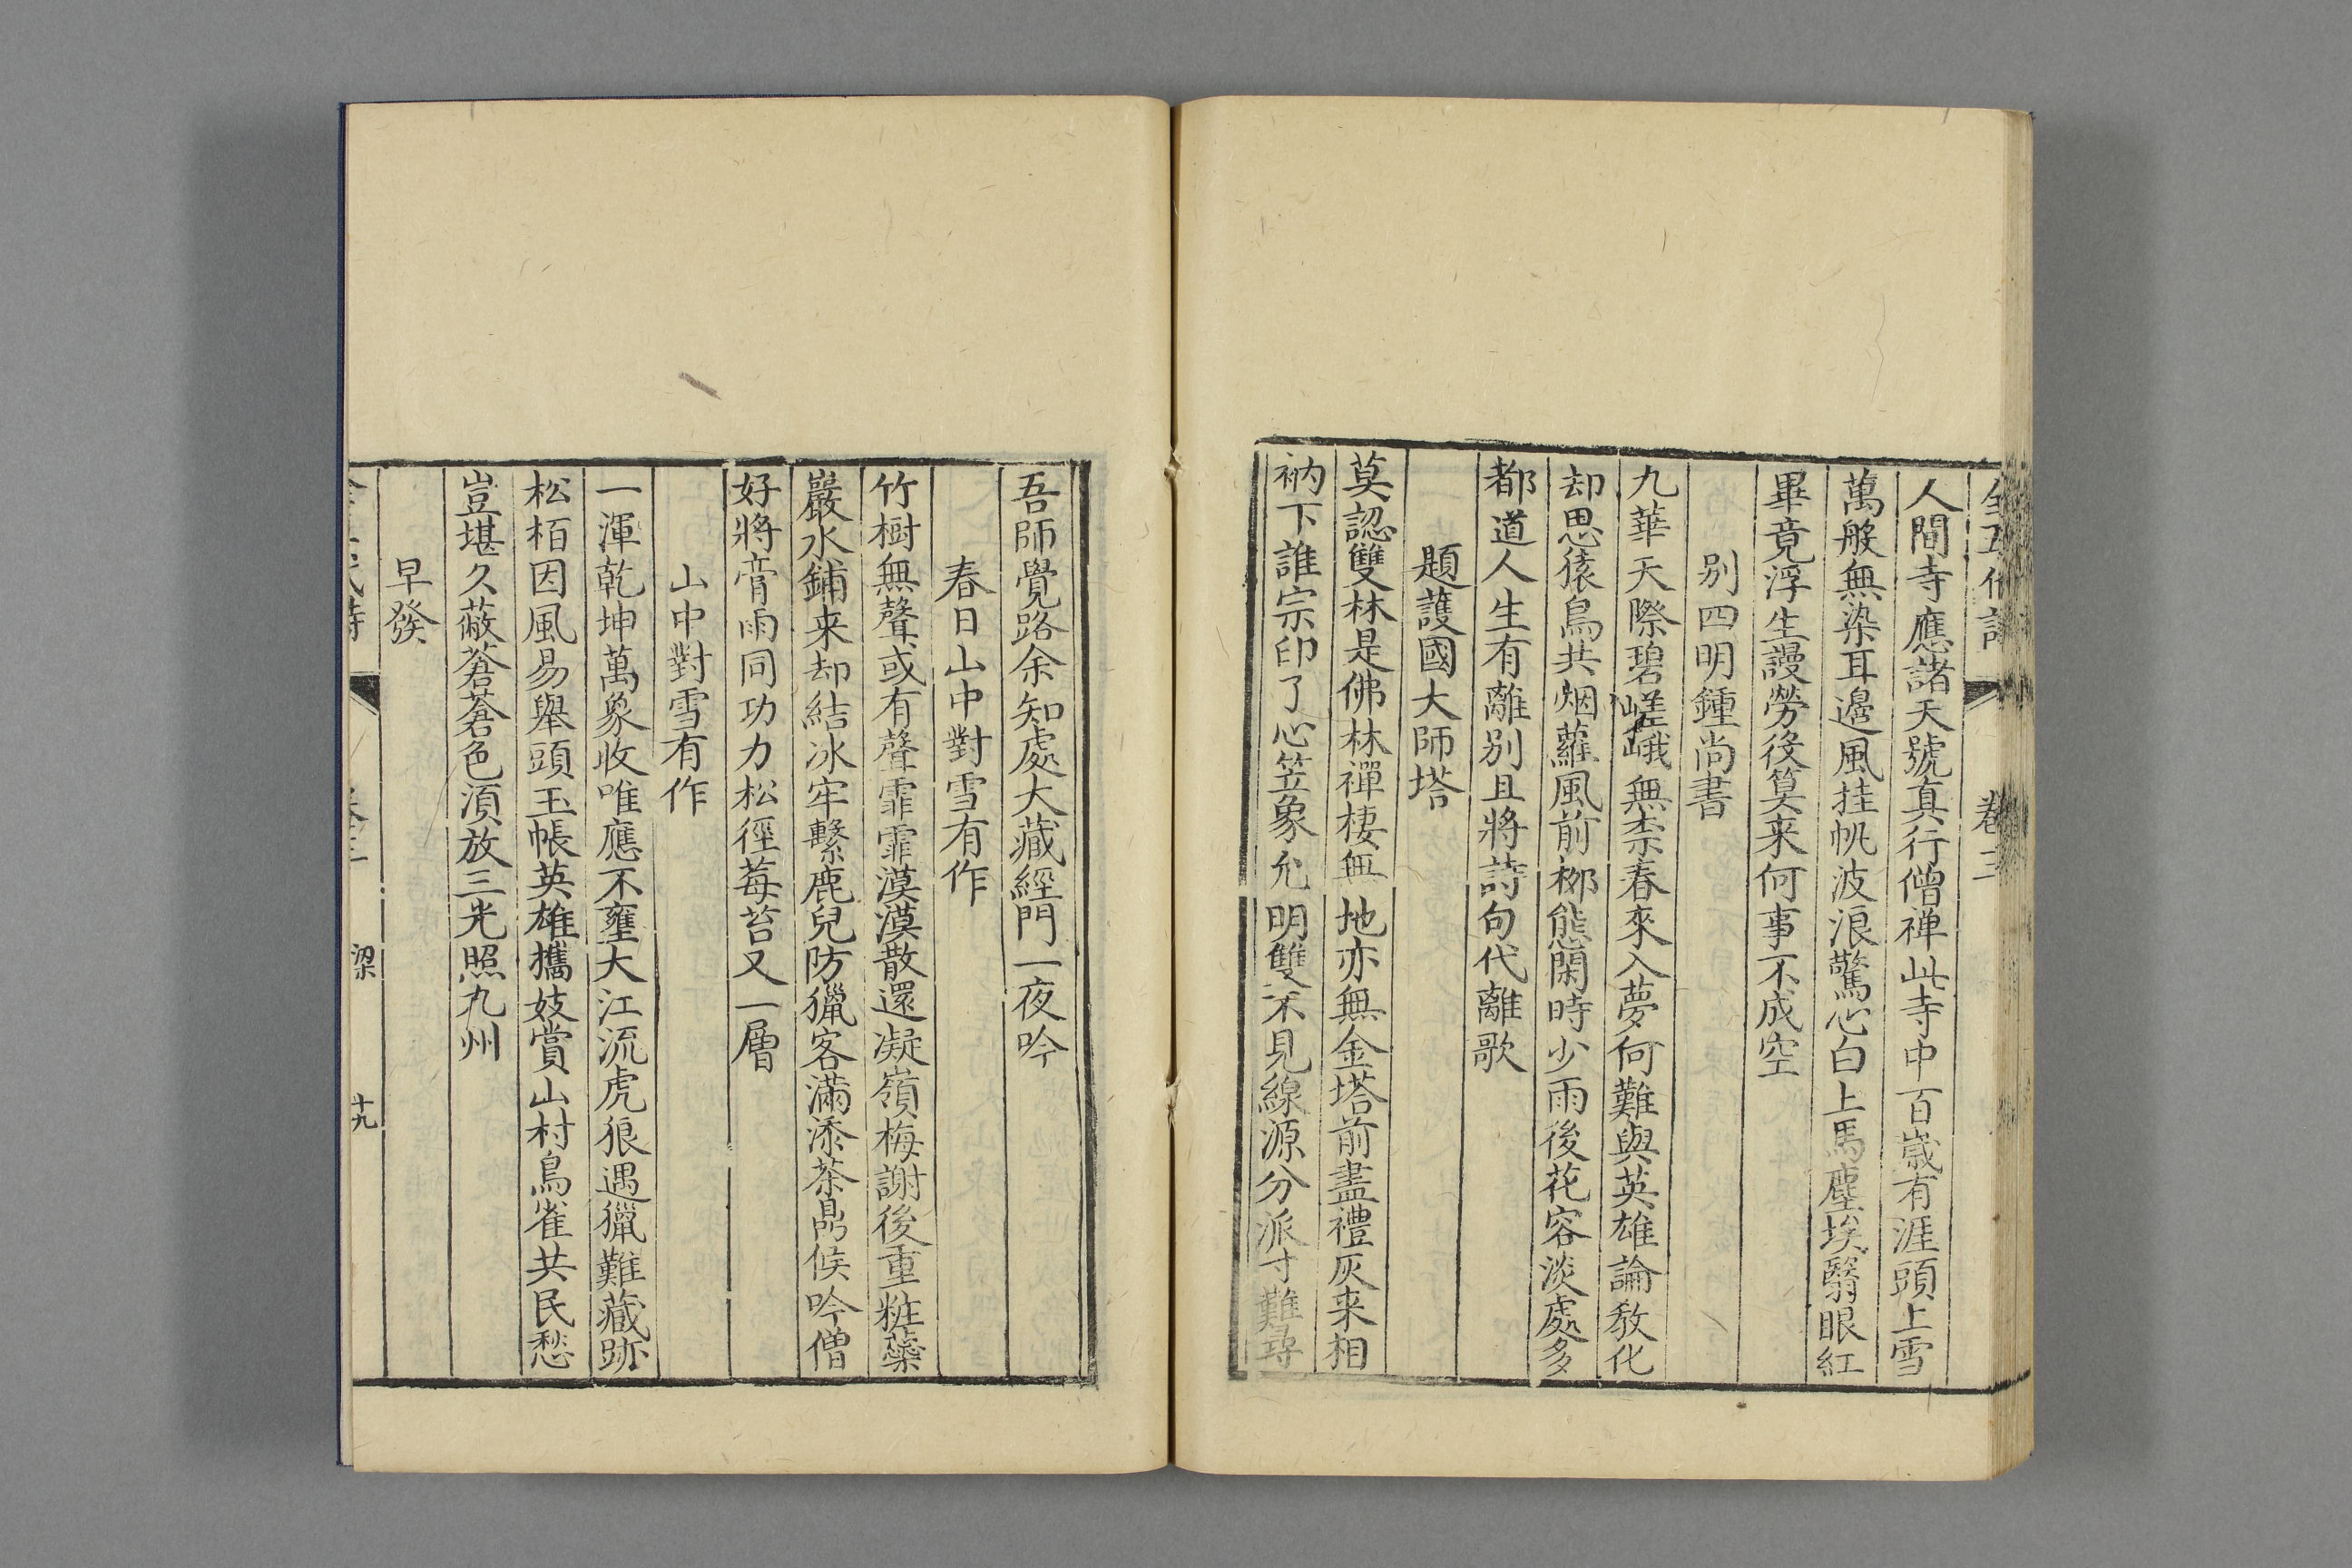 人間寺應諸天號真行僧禅此寺中百歲有涯頭上雪
萬般無染耳邊風挂帆波浪驚心白上馬塵埃翳眼紅
畢竟浮生謾勞役筭来何事不成空
别四明鍾尚書
九華天際碧嵯峨無柰春來入夢何難與英雄論教化
却思猿鳥共烟蘿風前栁態閑時少雨後花容淡處多
都道人生有離别且將詩句代離歌
題護國大師塔
莫認雙林是佛林禪棲無地亦無金塔前盡禮灰来相
衲下誰宗印了心笠象允明雙不見線源分派寸難尋
吾師覺路余知處大藏經門一夜吟
春日山中對雪有作
竹樹無聲或有聲霏霏漠漠散還凝嶺梅謝後重粧蘂
巖水鋪来却結冰牢繫鹿兒防獵客滿添茶鼎候吟僧
好將膏雨同功力松徑莓苔又一層
山中對雪有作
一渾乾坤萬象收唯應不壅大江流虎狼遇獵難藏跡
松栢因風易舉頭玉帳英雄攜妓賞山村鳥雀共民愁
豈堪久蔽蒼蒼色湏放三光照九州
早發
梁
十九